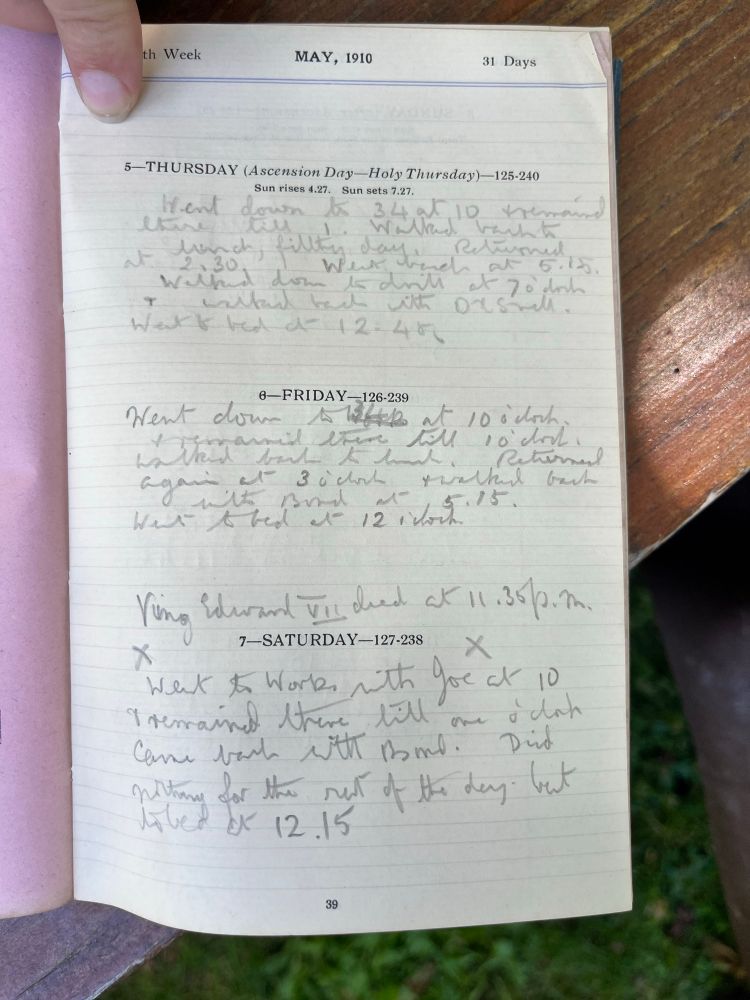 th Week MAY, 1910 31 Days
5—THURSDAY (Ascension Day—Holy Thursday)—125-240
Sun rises 4.27. Sun sets 7.27.
Went down to 34 at 10 & remained
there till 1. Walked back to
lunch, filthy day. Returned
at 2.30. Went back at 5.15.
Walked down to drill at 7 o'clock
& walked back with
Went to bed at 12-40
6—FRIDAY—126-239
Went down to 34 at 10 o'clock.
& remained there till 1 o'clock.
walked back to lunch. Returned
again at 3 o'clock & walked back
with Bond at 5.15.
Went to bed at 12 o'clock
King Edward VII died at 11.35 p.m.
7—SATURDAY—127-238
X X
Went to Works with Joe at 10
& remained there till one o'clock
Came back with Bond. Did
nothing for the rest of the day. Went
to bed at 12.15
39